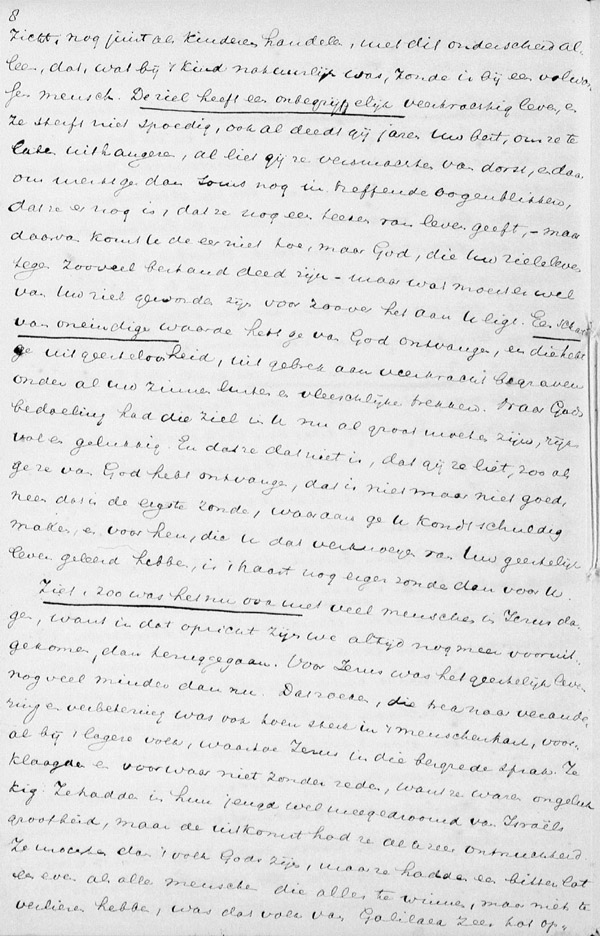 8
zicht, nog juist als kinderen handelen, met dit onderscheid al-
leen, dat, wat bij 't kind natuurlijk was, zonde is bij een volwas-
sen mensch. De ziel heeft een onbegrijpelijk veerkrachtig leven, en
ze sterft niet spoedig, ook al deedt gij jaren Uw best, om ze te
laten uithongeren, al liet gij ze versmachten van dorst, en dan
om merkt ge dan soms nog in treffende oogenblikken,
dat ze er nog is, dat ze nog een teeken van leven geeft, - maar
daarvan komt U de eer niet toe, maar God, die Uw zieleleven
tegen zooveel bestand deed zijn - maar wat moest er wel
van Uw ziel geworden zijn voor zoover het aan U ligt. Een schat
van oneindige waarde hebt ge van God ontvangen, en die hebt
ge uit geesteloosheid, uit gebrek aan veerkracht begraven
onder al Uw zinnen lusten en vleeschlijke trekken. Naar Gods
bedoeling had die ziel in U nu al groot moeten zijn, rijk
vol en gelukkig. En dat ze dat niet is, dat gij ze liet, zoo als
ge ze van God hebt ontvangen, dat is niet maar niet goed,
neen dat is de ergste zonde, waaraan ge U kondt schuldig
maken, en voor hen, die U dat verknoeyen van Uw geestelijk
leven geleerd hebben, is 't haast nog erger zonde dan voor U.
Ziet, zoo was het nu ook met veel menschen in Jezus da-
gen, want in dat opzicht zijn we altijd nog meer vooruit-
gekomen, dan teruggegaan. Voor Jezus was het geestelijk leven
nog veel minder dan nu. Dat zoeken, die trek naar verande-
ring en verbetering was ook toen sterk in 't menschenhart, voor-
al bij 't lagere volk, waartoe Jezus in die bergrede sprak. Ze
klaagden en voorwaar niet zonder reden, want ze waren ongeluk-
kig. Ze hadden in hun jeugd wel meegedroomd van Israëls
grootheid, maar de uitkomst had ze al te zeer ontnuchterd
Ze mochten dan 't volk Gods zijn, maar ze hadden een bitter lot
en even als alle menschen die alles te winnen, maar niets te
verliezen hebben, was dat volk van Galilaea zeer tot op-